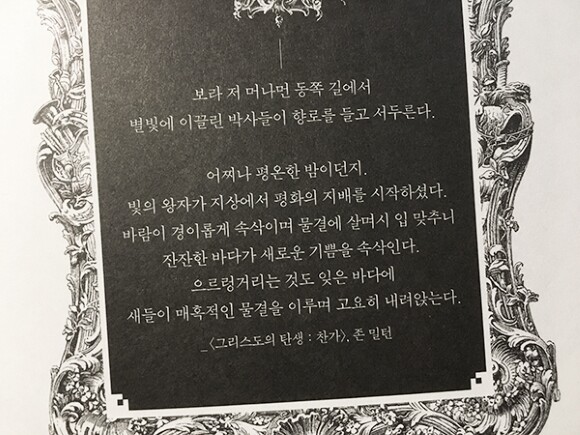 보라 저 머나먼 동쪽 길에서
별빛에 이끌린 박사들이 향로를 들고 서두른다.
어찌나 평온한 밤이던지.
빛의 왕자가 지상에서 평화의 지배를 시작하셨다.
바람이 경이롭게 속삭이며 물결에 살며시 입 맞추니
잔잔한 바다가 새로운 기쁨을 속삭인다.
으르렁거리는 것도 잊은 바다에
새들이 매혹적인 물결을 이루며 고요히 내려앉는다.
_〈그리스도의 탄생 : 찬가〉, 존 밀턴